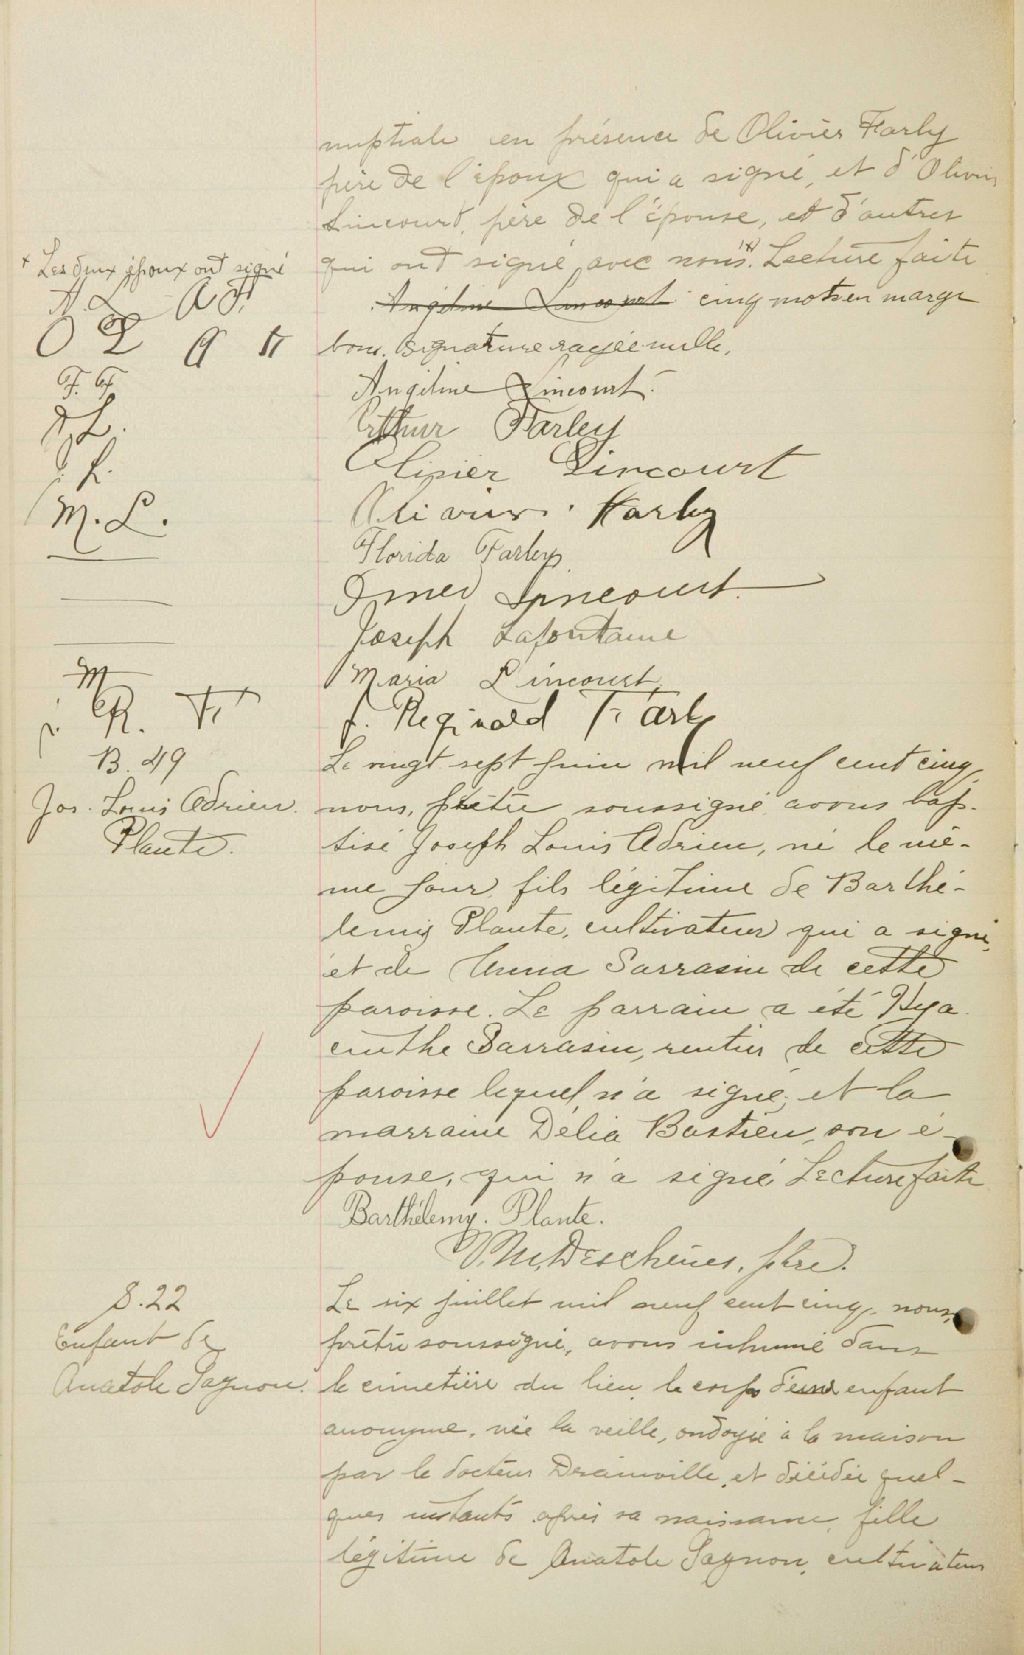 nuptiale en présence de Olivier Farly
père de l'époux qui a signé, et d'Olivier
Lincourt, père de l'épouse, et d'autres
* Les deux époux ont signé
qui ont signé avec nous. (*) Lecture faite
A. L. A F.
Angéline Lincourt cinq mots en marge
O L O F
bons. Signature rayée nulle.
F. F.
Angéline Lincourt.
O. L.
Arthur Farley
J. L.
Olivier Lincourt
M. L.
Olivier Farly
Florida Farley
Omer Lincourt
Joseph Lafontaine
Maria Lincourt
J. R. F.
J. Reginald Farly
B. 49
Le vingt-sept juin mil neuf cent cinq,
Jos. Louis Adrien
nous, prêtre soussigné avons bap-
Plante.
tisé Joseph Louis Adrien, né le mê-
me jour, fils légitime de Barthé-
lemy Plante, cultivateur qui a signé,
et de Anna Sarrasin de cette
paroisse. Le parrain a été Hya
cinthe Sarrasin, rentier de cette
paroisse lequel n'a signé, et la
marraine Délia Bastien, son é-
pouse, qui n'a signé. Lecture faite
Barthélemy. Plante.
Deschênes, ptre.
S. 22
Le six juillet mil neuf cent cinq, nous,
Enfant de
prêtre soussigné, avons inhumé dans
Anatole Gagnon.
le cimetière du lieu, le corps d'une enfant
anonyme, née la veille, ondoyée à la maison
par le docteur Drainville, et décédée quel-
ques instants après sa naissance, fille
légitime de Anatole Gagnon, cultivateur